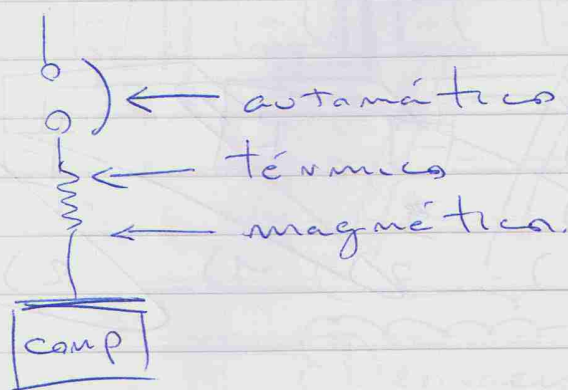 automático
térmico
magnético.
comp